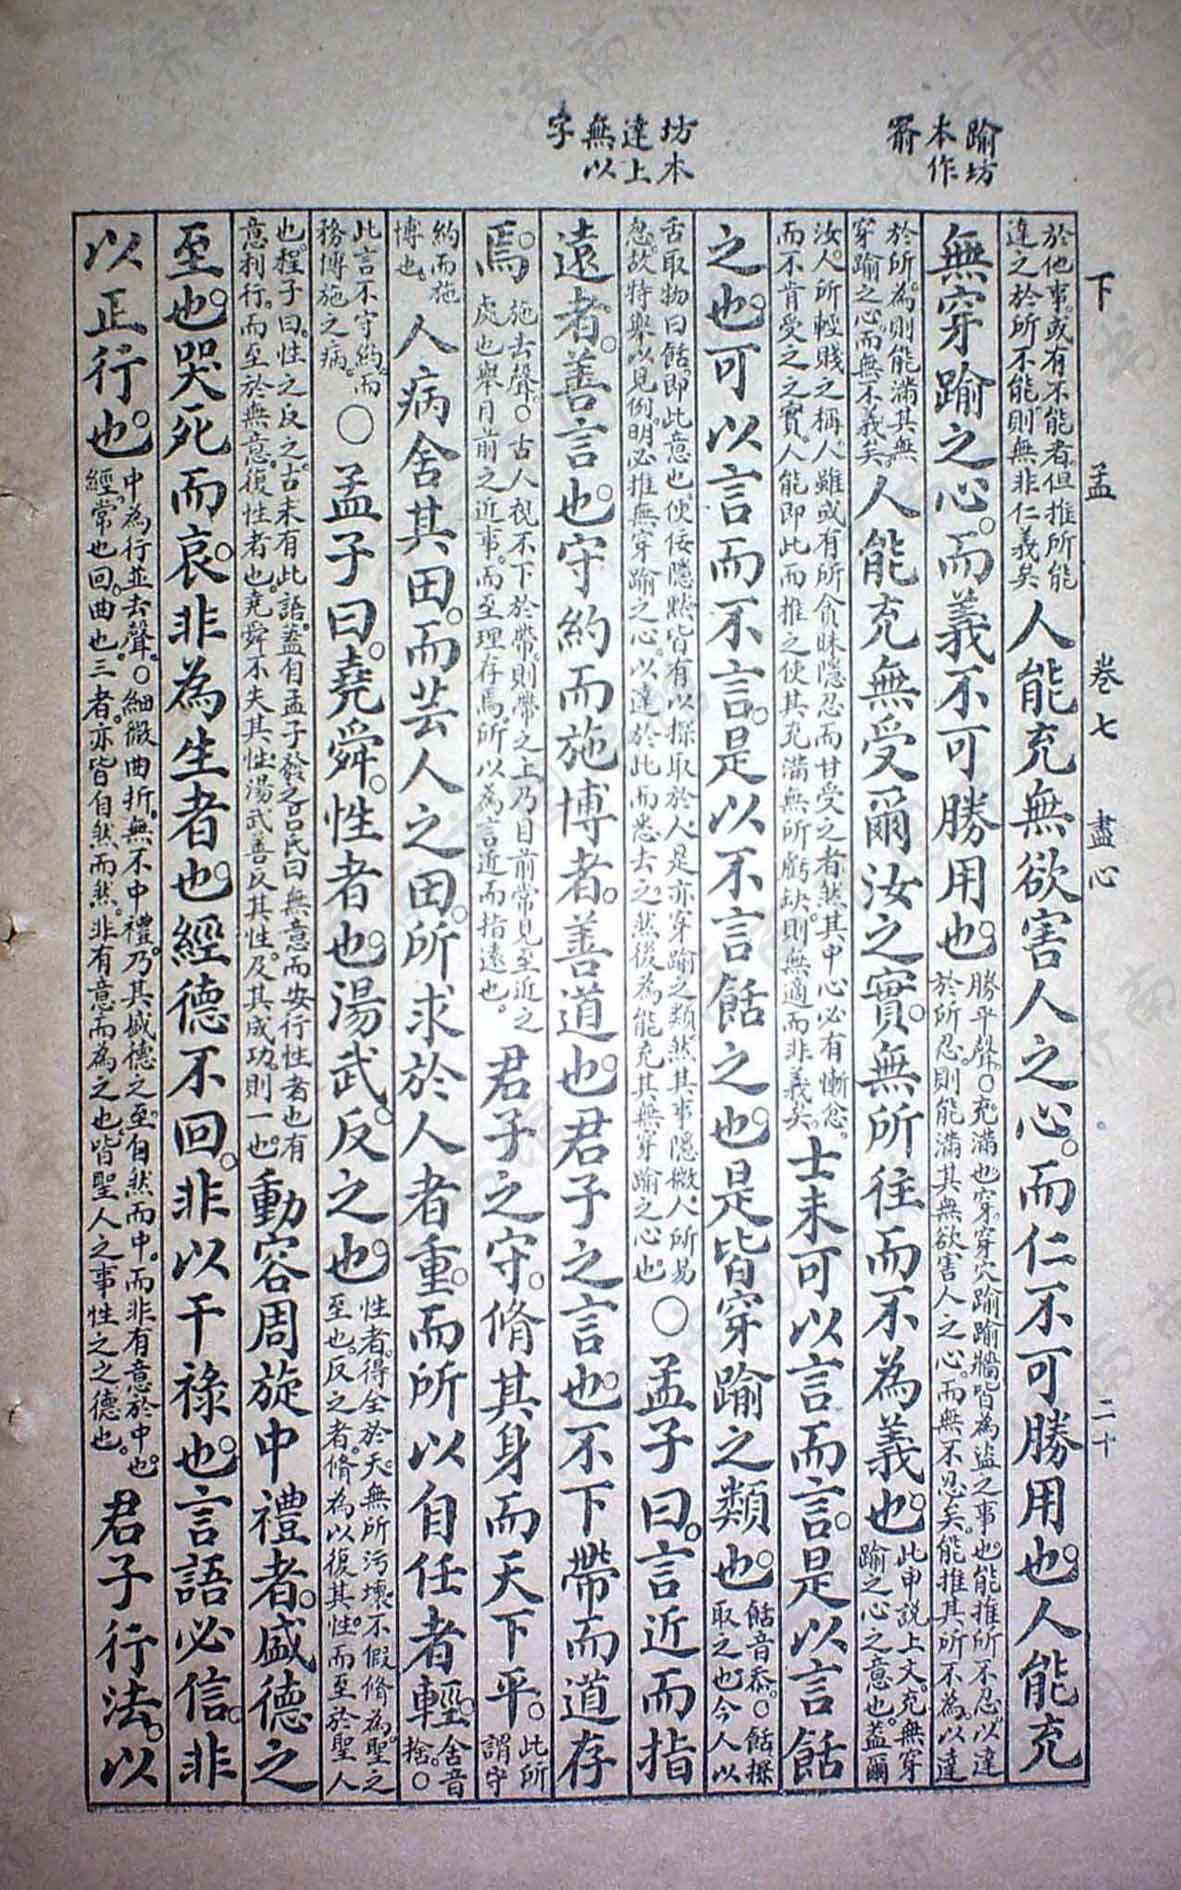 踰坊
本作
窬
坊本
達上
無以
字
下 孟 卷七 盡心 二十
於他事或有不能者但推所能
達之於所不能則無非仁義矣
人能充無欲害人之心。而仁不可勝用也。人能充
無穿踰之心。而義不可勝用也。
勝平聲。○充。滿也。穿。穿穴。踰。踰牆。皆為盜之事也。能推所不忍。以達
於所忍。則能滿其無欲害人之心。而無不忍矣。能推其所不為。以達
於所為。則能滿其無
穿踰之心。而無不義矣。
人能充無受爾汝之實。無所往而不為義也。
此申說上文。充無穿
踰之心之意也。蓋爾
汝。人所輕賤之稱。人雖或有所貪昧隱忍而甘受之者。然其中心必有慚忿。
而不肯受之之實。人能即此而推之。使其充滿無所虧缺。則無適而非義矣。
士未可以言而言。是以言餂
之也。可以言而不言。是以不言餂之也。是皆穿踰之類也。
餂音忝。○餂。探
取之也。今人以
舌取物曰餂。即此意也。便佞隱默。皆有以探取於人。是亦穿踰之類。然其事隱微。人所易
忽。故特舉以見例。明必推無穿踰之心。以達於此而悉去之。然後為能充其無穿踰之心也。
○孟子曰。言近而指
遠者。善言也。守約而施博者。善道也。君子之言也。不下帶而道存
焉。
施去聲。○古人視不下於帶。則帶之上。乃目前常見至近之
處也。舉目前之近事。而至理存焉。所以為言近而指遠也。
君子之守。脩其身而天下平。
此所
謂守
約而施
博也。
人病舍其田。而芸人之田。所求於人者重。而所以自任者輕。
舍音
捨。○
此言不守約。而
務博施之病。
○孟子曰。堯舜。性者也。湯武。反之也。
性者。得全於天。無所污壞。不假脩為。聖之
至也。反之者。脩為以復其性。而至於聖人
也。程子曰。性之反之。古未有此語。蓋自孟子發之。呂氏曰。無意而安行。性者也。有
意利行。而至於無意。復性者也。堯舜不失其性。湯武善反其性。及其成功。則一也。
動容周旋中禮者。盛德之
至也。哭死而哀。非為生者也。經德不回。非以干祿也。言語必信。非
以正行也。
中為行並去聲。○細微曲折。無不中禮。乃其盛德之至。自然而中。而非有意於中也。
經。常也。回。曲也。三者。亦皆自然而然。非有意而為之也。皆聖人之事。性之之德也。
君子行法。以